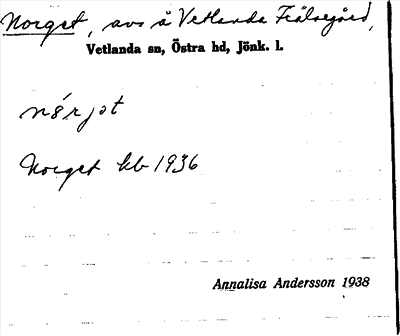 Norget, avs å Vetlanda Frälsegård,
Vetlanda sn, Östra hd, Jönk. l.
Norget kb 1936
Annalisa Andersson 1938